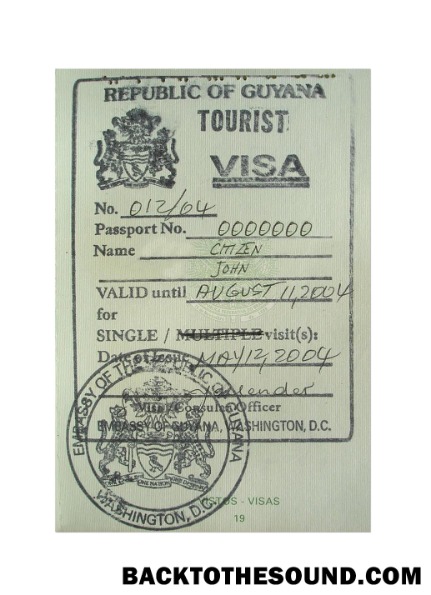 REPUBLIC OF GUYANA
TOURIST
VISA
No. 012/04
Passport No. 0000000
Name CITIZEN
JOHN
VALID until AUGUST 11, 2004
for
SINGLE / MULTIPLE visit(s):
Date of Issue MAY 12, 2004
Visa / Consular Officer
EMBASSY OF GUYANA, WASHINGTON, D.C.
EMBASSY OF THE REPUBLIC OF GUYANA
WASHINGTON, D.C.
VISTOS - VISAS
19
BACKTOTHESOUND.COM